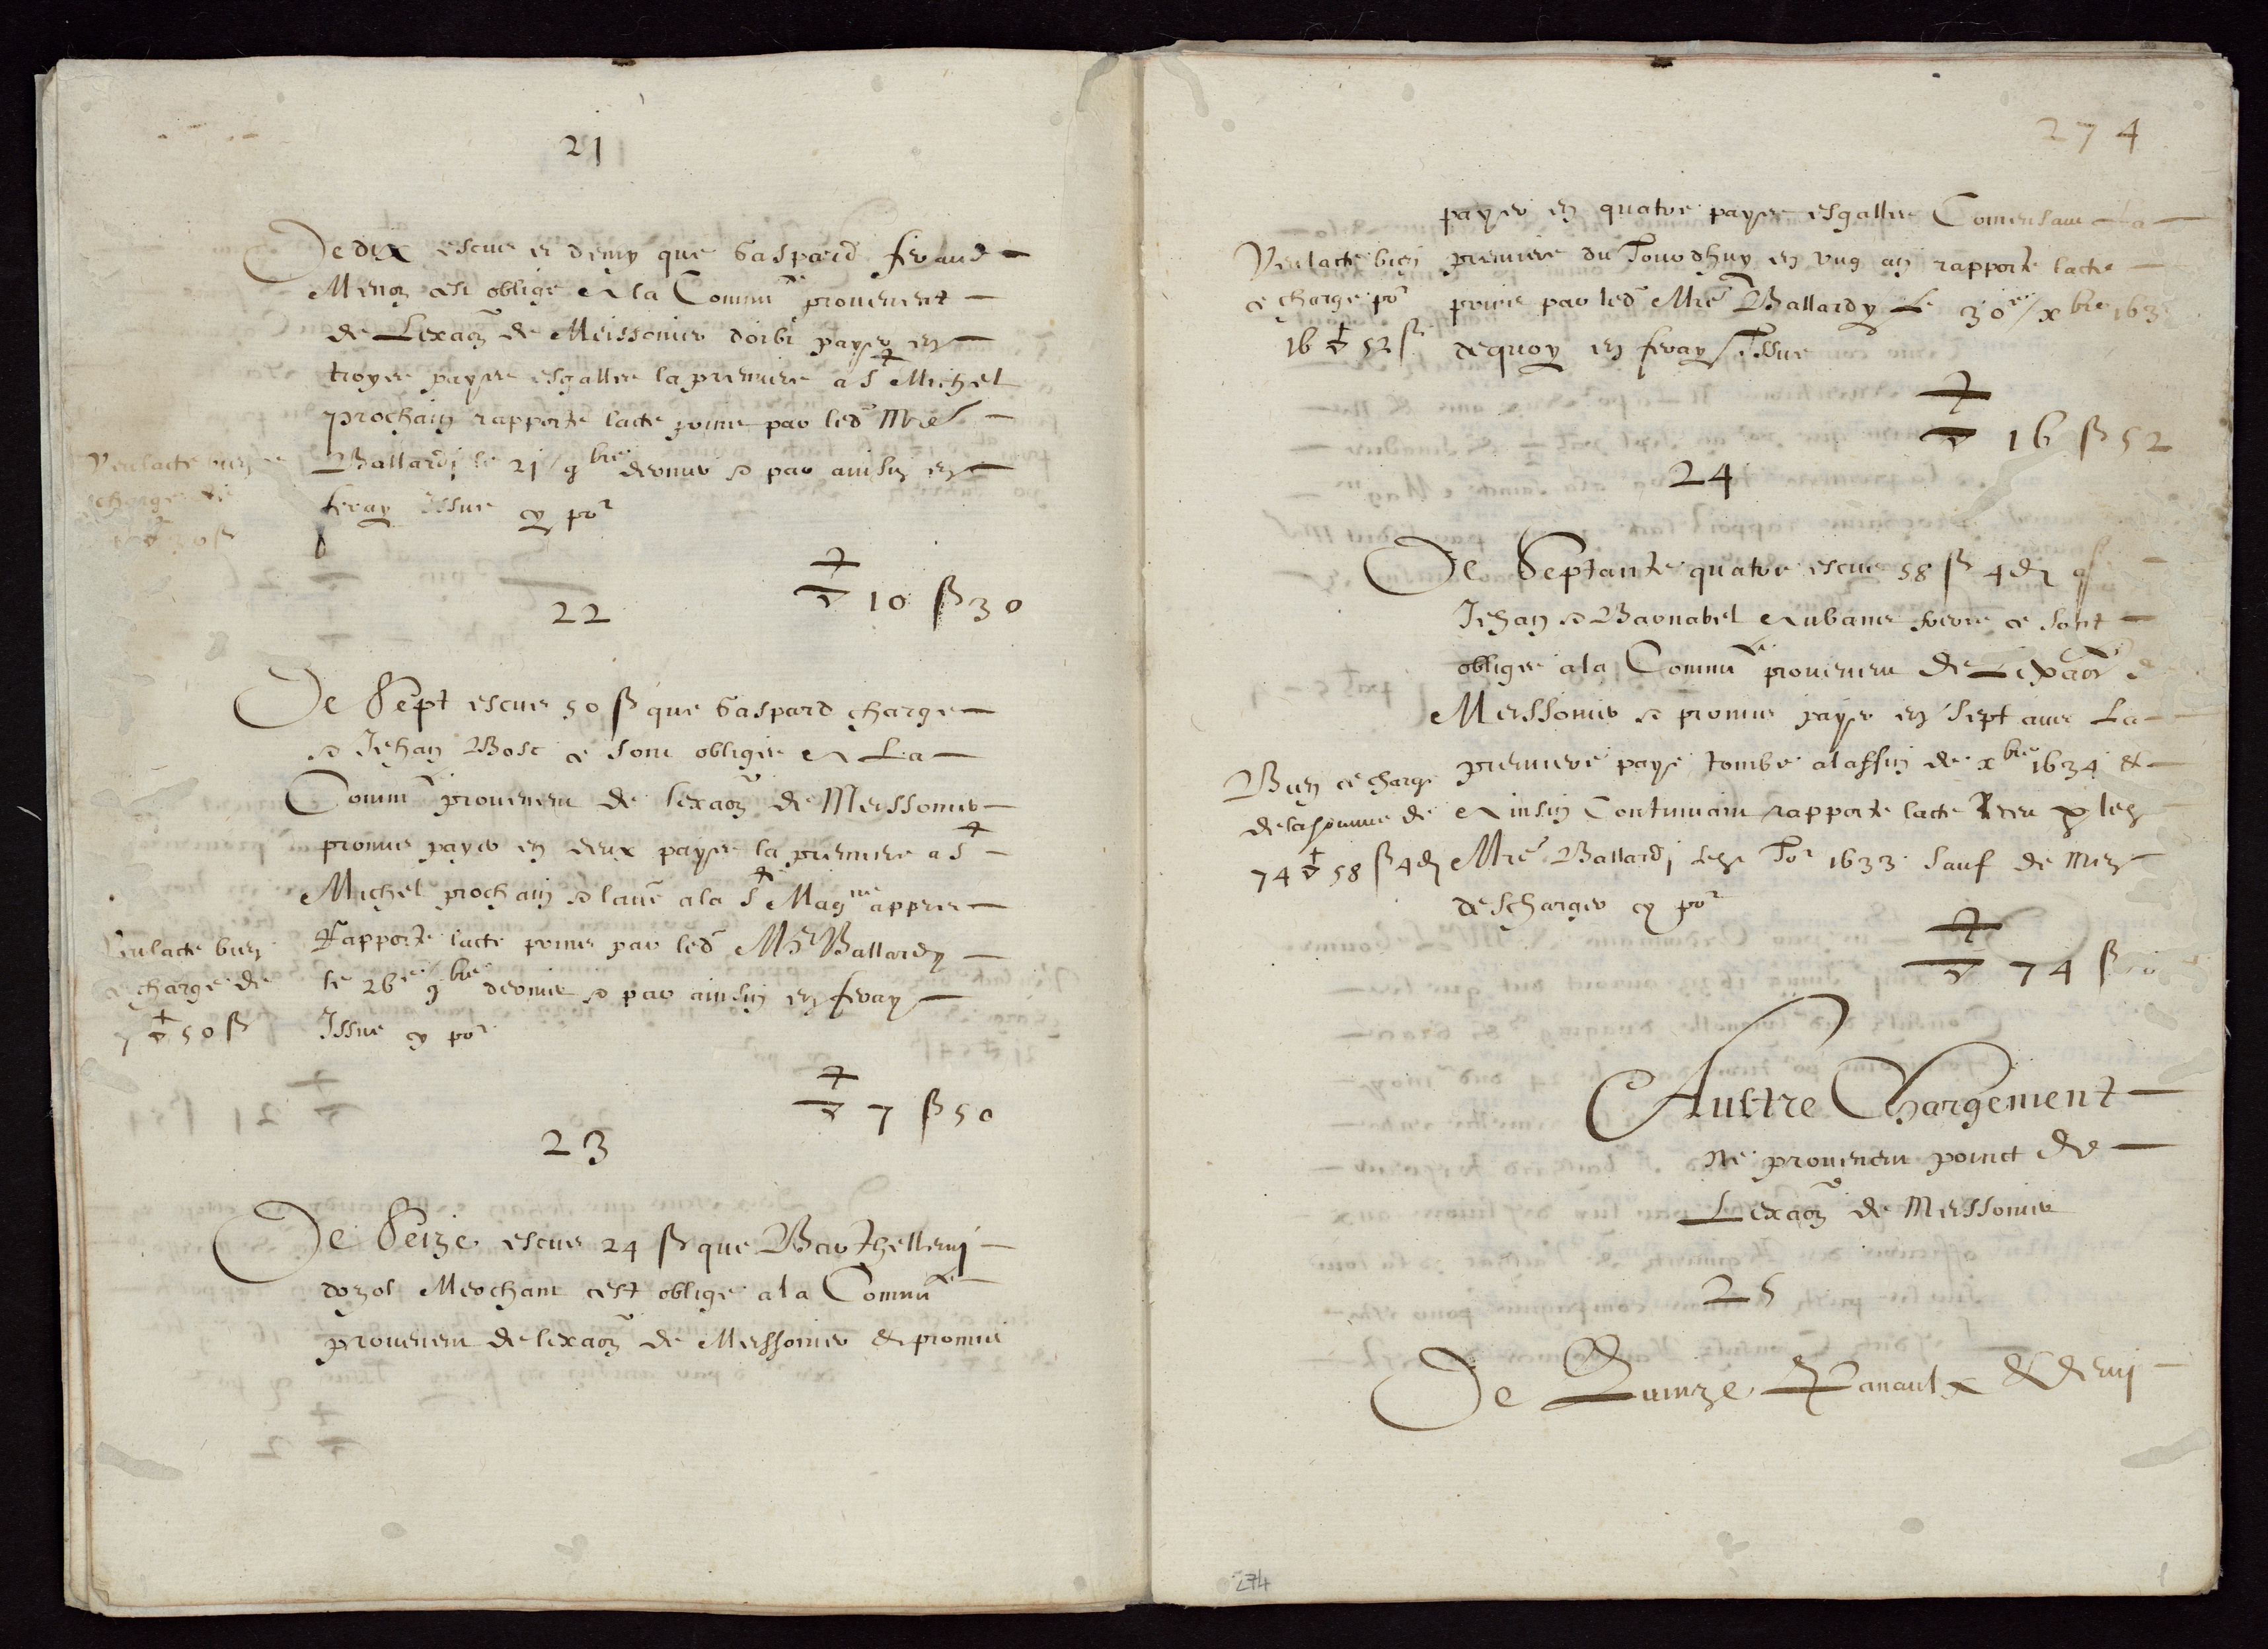 21
De dix escus et demy que Gaspard feraud
Menon cest oblige A la Commte provenent
de Lexaon de Meissonier doibt payer en
troyes payes esgalles la premiere a St Michel
prochain rapporte lacte prins par led Mre
Ballardi le 21 / 9bre dernier & par ainsin en
feray Issue cy por
Veu lacte bien
charge de
10 30 ß
10 ß 30
22
De Sept escus 50 ß que Gaspard charge
& Jehan Bosc ce sont obliges A La
Commte provenent de lexaon de Meissonier
promis payer en deux payes la premiere a St
Michel prochain & laue a la Ste Magne appres
Rapporte lacte prins par led Mre Ballardy
le 26e 9bre dernier & par ainsin en feray
Issue cy por
Veu lacte bien
ce charge de
7 50 ß
7 ß 50
23
De Seize escus 24 ß que Barthellemj
dozol Merchant cest oblige a la Commte
provenent de lexaon de Meissonier & promis
274
payer en quatre payes esgalles Comensant La
premiere du Jourdhuy en ung an rapporte lacte
prins par led Mre Ballardy Le 30e / xbre 163
dequoy en feray Issue
Veu lacte bien
ce charge por
16 52 ß
16 ß 52
24
De Septante quatre escus 58 ß 4 d q
Jehan & Barnabel Aubans freres ce sont
obliges a la Commte provenent de Lexaon d
Meissonier & promis payer en sept ans La
premiere paye tombe a la ffin de xbre 1634 &
Ainsin Continuant rapporte lacte Receu p les
Mre Ballardj les Jor 1633 sauf de mes
descharges cy por
Bien ce charge
de la somme de
74 58 ß 4 d
74 ß
Aultre Chargement
ne provenent poinct de
Lexaon de Meissonier
25
De Quinze Panaulx & demj
274